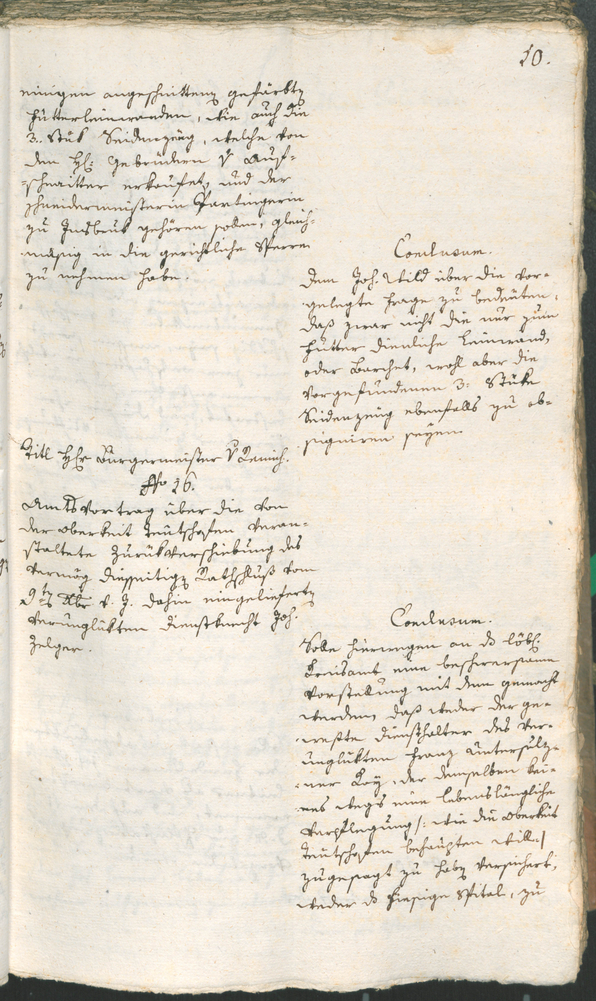 10.
einigen angeschnitteng gefärbtg
Hütterleinwanden, wie auch die
3. Stük Seidenzeug, welche von
den H: Gebrüdern v Auf-
schnaitter erkaufet, und der
Schneidermeisterin Partingerin
zu Insbruk gehören sollen, gleich-
mäsig in die gerichtliche Sperre
zu nehmen habe.
Conclusum.
Dem Joh. Wild über die vor-
gelegte Frage zu bedeuten,
daß zwar nicht die nur zum
Hütter dienliche Leinwand,
oder Barchet, wohl aber die
vorgefundenen 3: Stüke
Seidenzeug ebenfalls zu ob-
signiren seyen
Titl Hr Burgermeister v Zenich.
No 16.
Amtsvortrag über die von
der Oberkeit Teutschofen veran-
staltete Zurükverschiebung des
vermög diesseitigg Rathschluß vom
9ten Xbr v. J. dahin eingelieferteg
verunglükten Dienstknecht Joh.
Zelger.
Conclusum.
Solle hinwegen an d löbl.
Kreisamt eine beschwersame
Vorstellung mit dem gemacht
werden, daß weder der ge-
weßte Diensthalter des ver-
unglükten Franz Untersulz-
ner Loy, der demselben kei-
nes wegs eine lebenslängliche
Verpflegung /: wie die Oberkeit
Teutschofen behaupten will :/
zugesagt zu habg versichert,
weder d hiesige Spital, zu